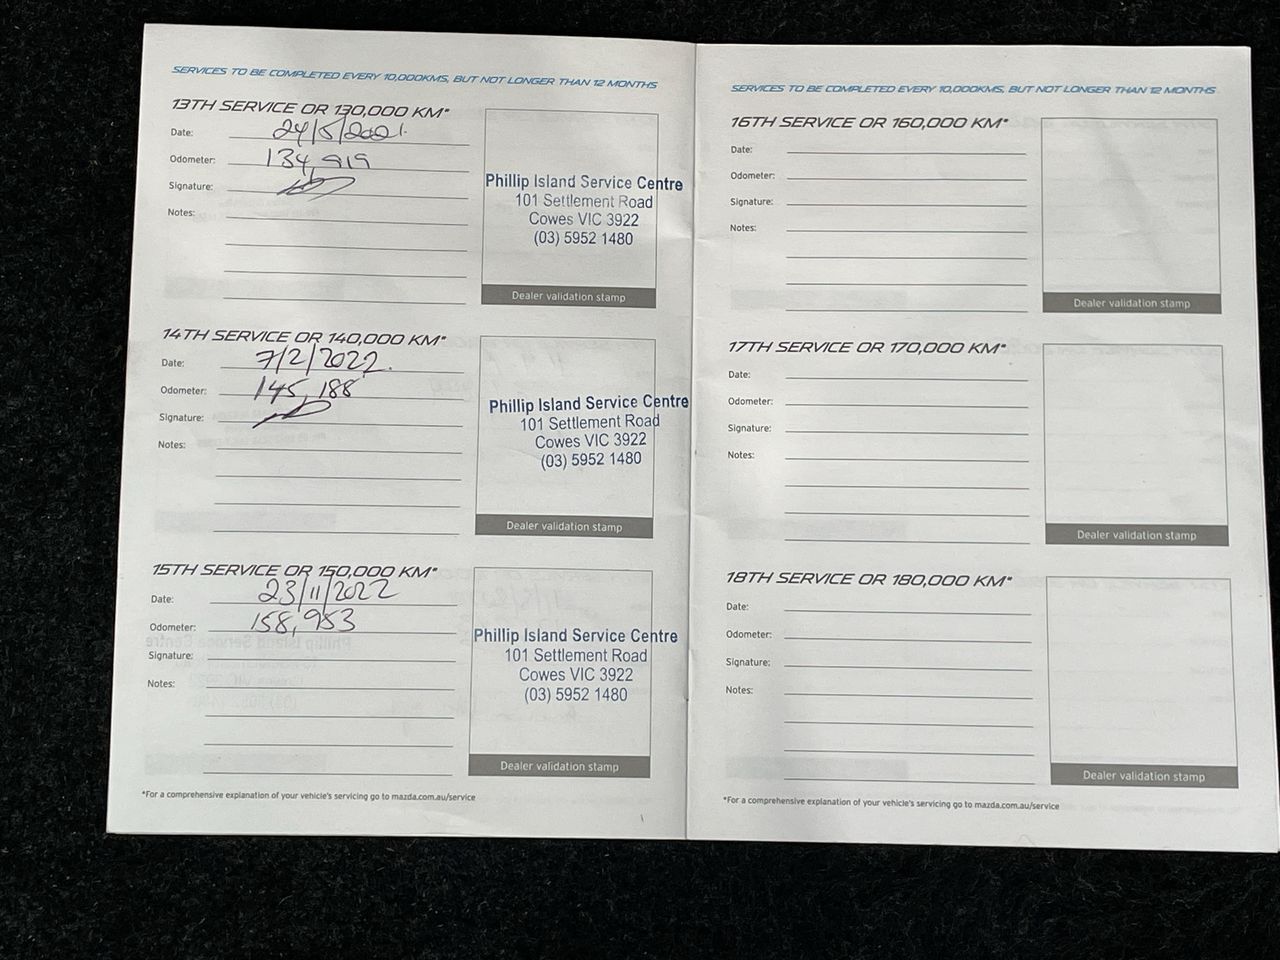 SERVICES TO BE COMPLETED EVERY 10,000KMS, BUT NOT LONGER THAN 12 MONTHS
13TH SERVICE OR 130,000 KM*
Date: 24/5/2021.
Odometer: 134,919
Signature:
Notes:
Phillip Island Service Centre
101 Settlement Road
Cowes VIC 3922
(03) 5952 1480
Dealer validation stamp
14TH SERVICE OR 140,000 KM*
Date: 7/2/2022.
Odometer: 145,188
Signature:
Notes:
Phillip Island Service Centre
101 Settlement Road
Cowes VIC 3922
(03) 5952 1480
Dealer validation stamp
15TH SERVICE OR 150,000 KM*
Date: 23/11/2022
Odometer: 158,953
Signature:
Notes:
Phillip Island Service Centre
101 Settlement Road
Cowes VIC 3922
(03) 5952 1480
Dealer validation stamp
*For a comprehensive explanation of your vehicle's servicing go to mazda.com.au/service
SERVICES TO BE COMPLETED EVERY 10,000KMS, BUT NOT LONGER THAN 12 MONTHS
16TH SERVICE OR 160,000 KM*
Date:
Odometer:
Signature:
Notes:
Dealer validation stamp
17TH SERVICE OR 170,000 KM*
Date:
Odometer:
Signature:
Notes:
Dealer validation stamp
18TH SERVICE OR 180,000 KM*
Date:
Odometer:
Signature:
Notes:
Dealer validation stamp
*For a comprehensive explanation of your vehicle's servicing go to mazda.com.au/service